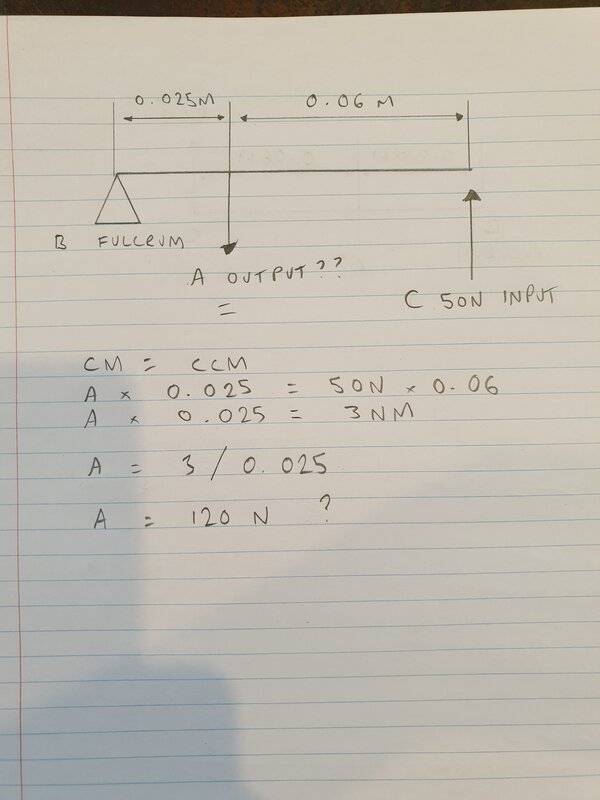 0.025M 0.06 M
B FULCRUM
A OUTPUT??
=
C 50N INPUT
CM = CCM
A × 0.025 = 50N × 0.06
A × 0.025 = 3NM
A = 3 / 0.025
A = 120 N ?